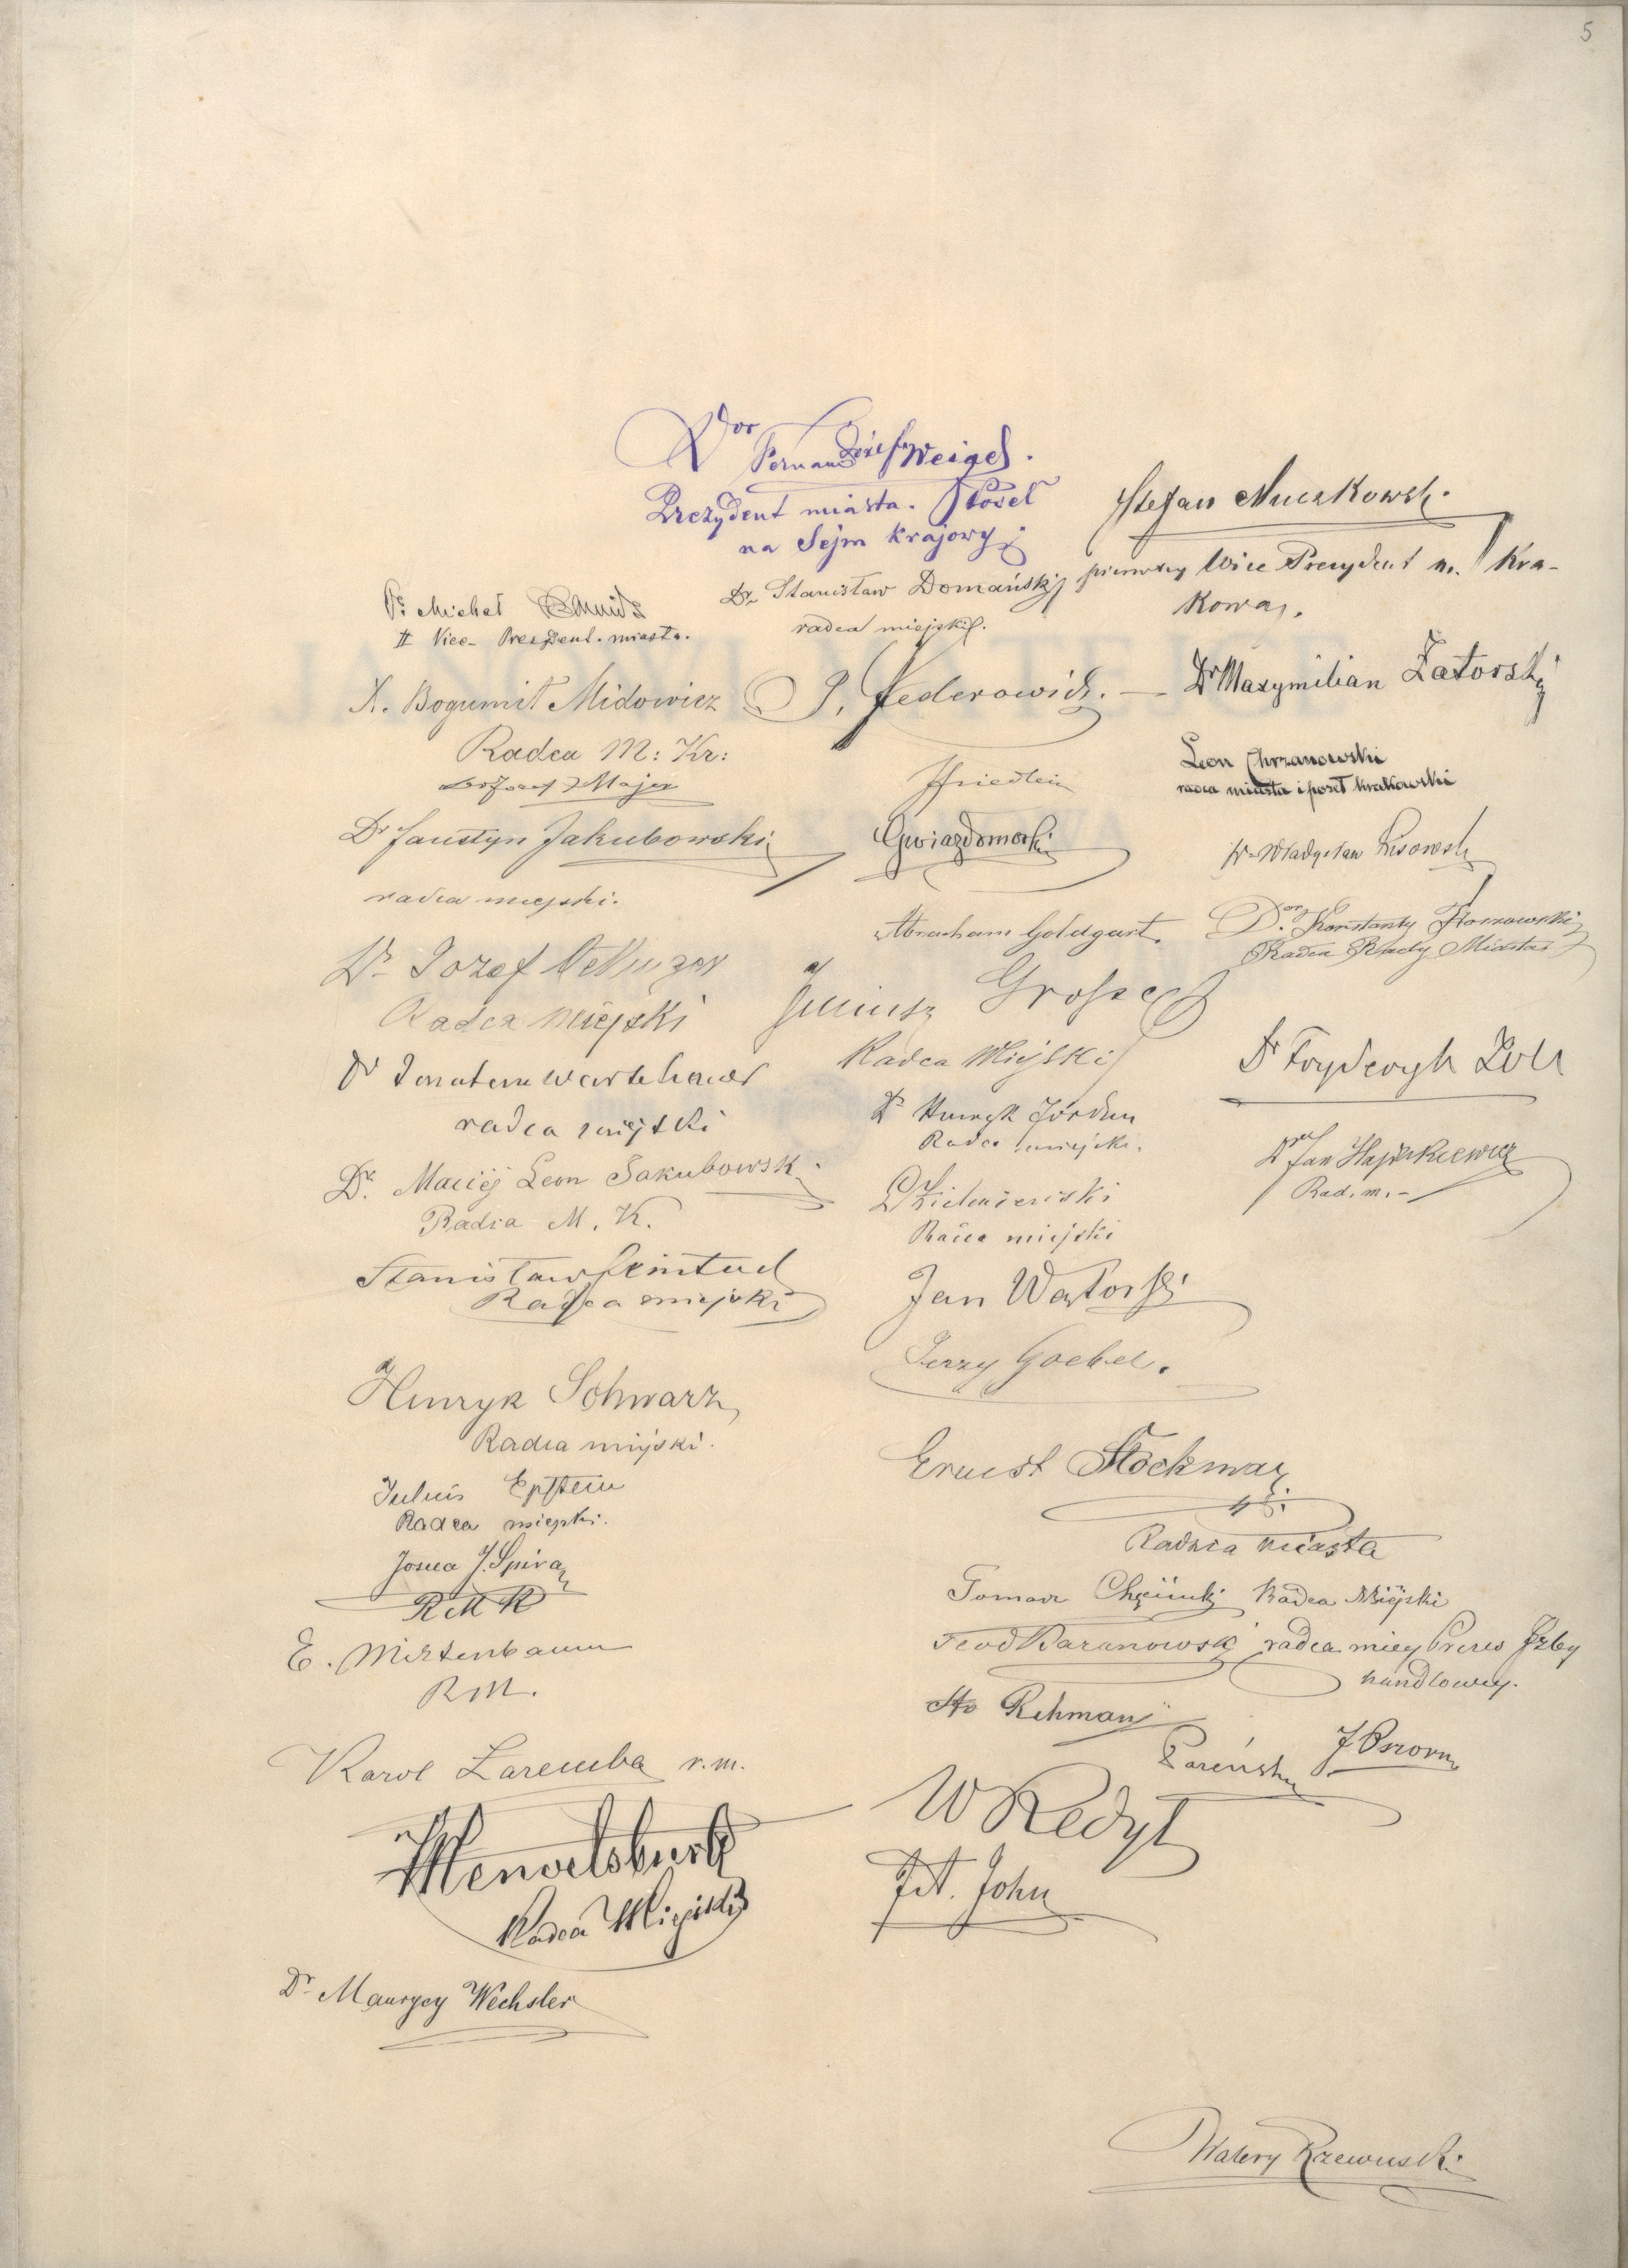 5
Dor Fernand Józef Weigel.
Prezydent miasta. Poseł
na Sejm krajowy
Stefan Muczkowski.
pierwszy Wice Prezydent m. Kra-
kowa.
Dr Michał
II Vice-Prezydent miasta.
Dr Stanisław Domański
radca miejski.
X. Bogumił Midowicz
Radca M: Kr:
J. Federowicz.
Dr Maxymilian Zatorski
Dor Józef Majer
Friedlein
Leon Chrzanowski
radca miasta i poseł krakowski
Dr Faustyn Jakubowski
radca miejski.
Gwiazdomorski
Dr Władysław Lisowski
Abraham Goldgart.
Dor Konstanty
Radca Rady Miasta
Dr Józef Oettinger
Radca miejski
Juliusz Grosse
Radca Miejski
Dr Fryderyk Zoll
Dr Jonatan Warschauer
radca miejski
Dr Henryk Jordan
Radca miejski.
Dr Jan Hajdukiewicz
Rad. m.
Dr. Maciej Leon Jakubowski
Radca M. K.
Radca miejski
Stanisław Feintuch
Radca miejski
Jan Wątorski
Jerzy Goebel.
Henryk Schwarz
Radca miejski.
Ernest Stockmar
Radzca miasta
Julius Epstein
Radca miejski.
Josua J. Spira
RMK
Tomasz Chęciński Radca Miejski
E. Mirtenbaum
RM.
Teod Baranowski radca miey Prezes Izby
handlowey.
Rehman
Pareński
Karol Zaremba r.m.
W Redyk
Mendelsburg
Radca Miejski
Fr. John
Dr Maurycy Wechsler
Walery Rzewuski